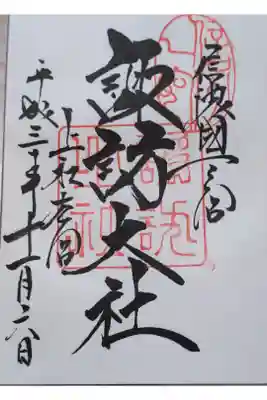 信濃國一之宮
諏訪大社
上社本宮
平成三十年十一月日